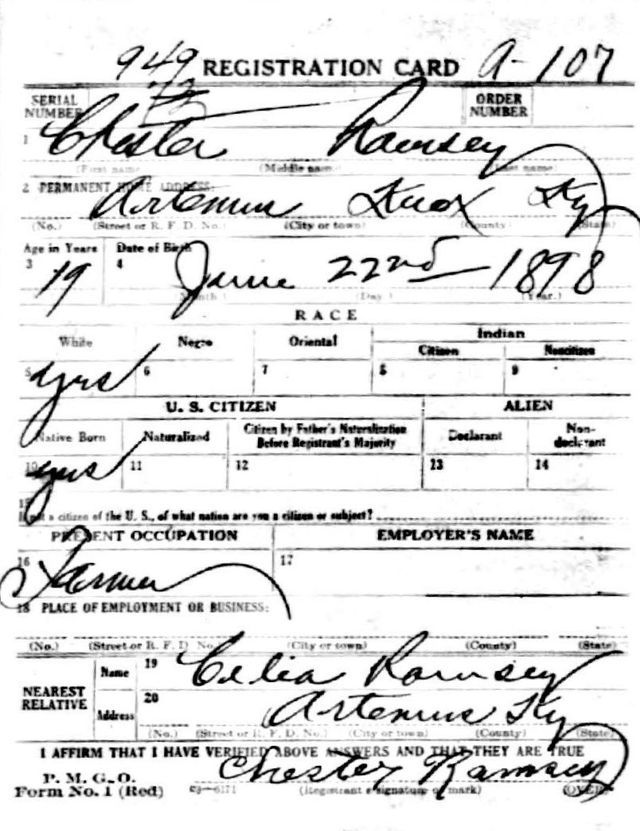 949 REGISTRATION CARD A-107
SERIAL NUMBER
ORDER NUMBER
1 Chester Ramsey
(First name) (Middle name) (Last name)
2 PERMANENT HOME ADDRESS:
Artemus Knox Ky
(No.) (Street or R. F. D. No.) (City or town) (County) (State)
Age in Years Date of Birth
3 19 4 June 22nd 1898
(Month) (Day) (Year.)
RACE
White Negro Oriental Indian
Citizen Noncitizen
5 yes 6 7 8 9
U. S. CITIZEN ALIEN
Native Born Naturalized Citizen by Father's Naturalization Before Registrant's Majority Declarant Non-declarant
10 yes 11 12 13 14
15
If not a citizen of the U. S., of what nation are you a citizen or subject?
PRESENT OCCUPATION EMPLOYER'S NAME
16 Farmer 17
18 PLACE OF EMPLOYMENT OR BUSINESS:
(No.) (Street or R. F. D. No.) (City or town) (County) (State)
NEAREST RELATIVE
Name 19 Celia Ramsey
Address 20 Artemus Ky
(No.) (Street or R. F. D. No.) (City or town) (County) (State)
I AFFIRM THAT I HAVE VERIFIED ABOVE ANSWERS AND THAT THEY ARE TRUE
P. M. G. O.
Form No. 1 (Red) 03-6171 Chester Ramsey
(Registrant's signature or mark) (OVER)